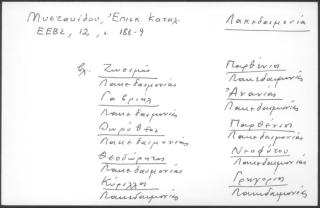 Μυστακίδου, Ἐπισκ. Καταλ.
ΕΕΒΣ, 12, σ 188-9
Λακεδαιμονία
βλ. Ζωσιμᾶς
Λακεδαιμονίας
Γαβριὴλ
Λακεδαιμονίας
Δωρόθεος
Λακεδαιμονίας
Θεοδώρητος
Λακεδαιμονίας
Κύριλλος
Λακεδαιμονίας
Παρθένιος
Λακεδαιμονίας
Ἀνανίας
Λακεδαιμονίας
Παρθένιος
Λακεδαιμονίας
Νεοφύτου
Λακεδαιμονίας
Γρηγόριος
Λακεδαιμονίας